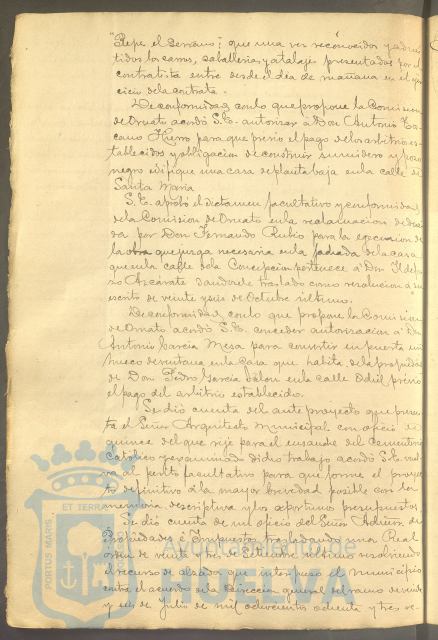 "Pepe el Serrano"; que una vez reconocidos y admi-
tidos los carros, caballerias y atalajes presentados por el
contratista entre desde el día de mañana en el ejer-
cicio de la contrata.
De conformidad con lo que propone la Comision
de Ornato acordó S.E. autorizar a Don Antonio
cano Hierro para que previo el pago de los arbitrios es-
tablecidos y obligacion de construir sumidero y pozo
negro edifique una casa de planta baja en la calle de
Santa María
S.E. aprobó el dictamen facultativo y conformidad
de la Comision de Ornato en la reclamacion
da por Don Fernando Rubio para la ejecucion de
la obra que juzga necesaria en la fachada de la casa
que en la calle de la Concepcion pertenece a Don Ildefon
so Azcárate dandosele traslado como resolucion a su
escrito de veinte y seis de Octubre último.
De conformidad con lo que propone la Comision
de Ornato acordó S.E. conceder autorizacion a Don
Antonio Garcia Mesa para convertir en puerta un
hueco de ventana en la casa que habita de la propiedad
de Don Pedro García Jalon en la calle Odiel previo
el pago del arbitrio establecido.
Se dió cuenta del ante proyecto que presen-
ta el Señor Arquitecto Municipal con oficio de
quince del que rije para el ensanche del Cementerio
Católico y examinado dicho trabajo acordó S.E. vuel-
va al perito facultativo para que forme el proyec-
to definitivo a la mayor brevedad posible con la
memoria descriptiva y los oportunos presupuestos
Se dió cuenta de un oficio del Señor Admor. de
Propiedades é Impuestos trasladando una Real
orden de veinte de Octubre último resolviendo
el recurso de alzada que interpuso el municipio
entre el acuerdo de la Direccion general del ramo de veinte
y seis de Julio de mil ochocientos ochenta y tres re-
PORTUS MARIS
ET TERRAE
Ayuntamiento de
HUELVA